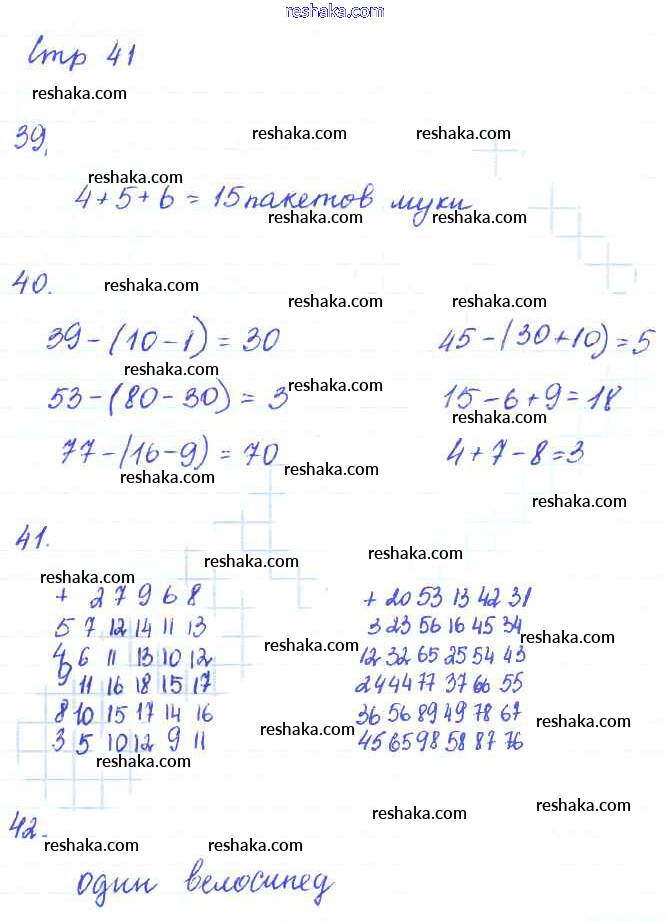 reshaka.com
Стр 41
reshaka.com
39.
reshaka.com reshaka.com
reshaka.com
4+5+6 = 15 пакетов муки
reshaka.com reshaka.com
40.
reshaka.com
reshaka.com reshaka.com
39-(10-1) = 30 45-(30+10)=5
reshaka.com
reshaka.com
53-(80-30) = 3 15-6+9=18
reshaka.com
77-(16-9) = 70 4+7-8=3
reshaka.com reshaka.com
reshaka.com
41.
reshaka.com reshaka.com
reshaka.com
+ 2 7 9 6 8 + 20 53 13 42 31
5 7 12 14 11 13 3 23 56 16 45 34
reshaka.com reshaka.com
4 6 11 13 10 12 12 32 65 25 54 43
9 11 16 18 15 17 24 44 77 37 66 55
8 10 15 17 14 16 36 56 89 49 78 67
reshaka.com reshaka.com
3 5 10 12 9 11 45 65 98 58 87 76
reshaka.com
42.
reshaka.com reshaka.com
reshaka.com reshaka.com
один велосипед